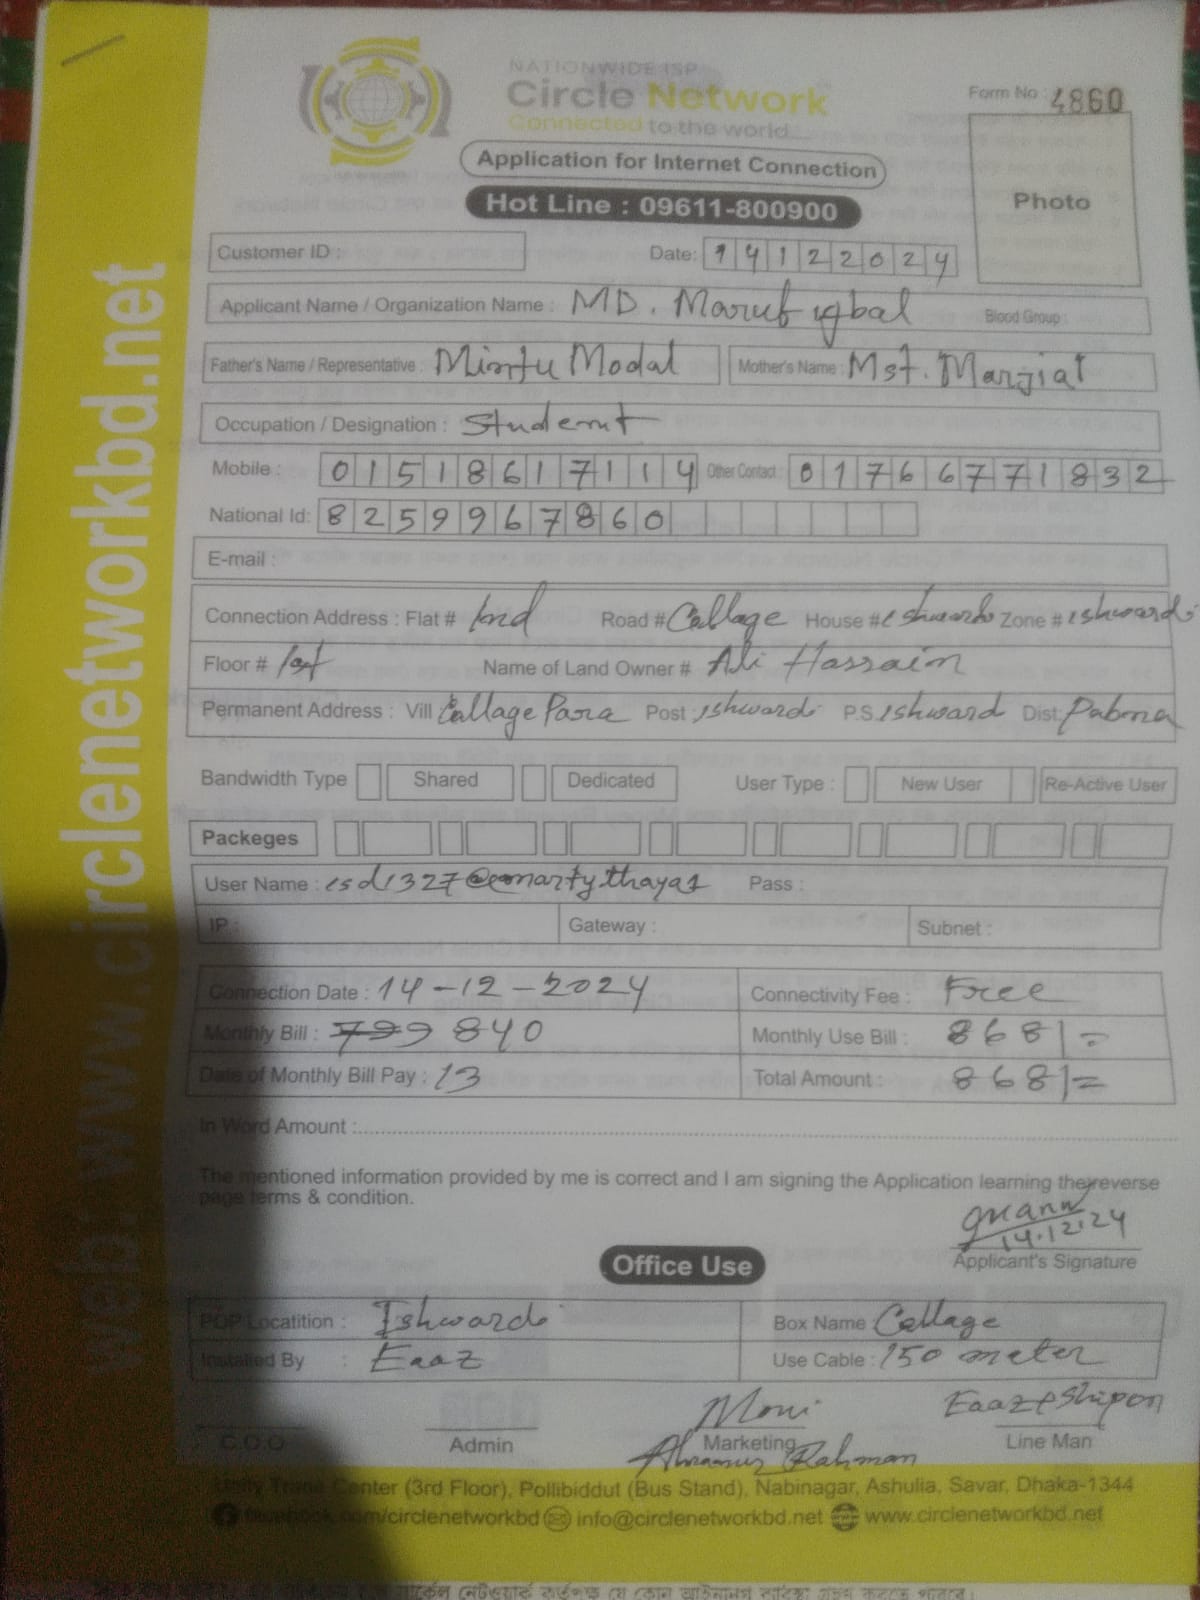 NATIONWIDE ISP
Circle Network
Connected to the world
Form No : 4860
Application for Internet Connection
Photo
Hot Line : 09611-800900
Customer ID :
Date: 14122024
Applicant Name / Organization Name : MD. Maruf iqbal Blood Group :
Father's Name / Representative : Mintu Modal Mother's Name : Mst. Marjiat
Occupation / Designation : Student
Mobile : 01518617114 Other Contact : 01766771832
National Id: 8259967860
E-mail :
Connection Address : Flat # Road # Collage House # Ishwardi Zone # Ishwardi
Floor # 1st Name of Land Owner # Ali Hassain
Permanent Address : Vill Collage Para Post : Ishwardi P.S. Ishward Dist: Pabna
Bandwidth Type Shared Dedicated User Type : New User Re-Active User
Packeges
User Name : Pass :
IP : Gateway : Subnet :
Connection Date : 14-12-2024 Connectivity Fee : Free
Monthly Bill : 799 840 Monthly Use Bill : 868/=
Date of Monthly Bill Pay : 13 Total Amount : 868/=
In Word Amount :
The mentioned information provided by me is correct and I am signing the Application learning the reverse
page terms & condition.
14.12.24
Applicant's Signature
Office Use
POP Locatition : Ishwardi Box Name Collage
Installed By : Eaaz Use Cable : 150 meter
Moni Eaaz & Shipon
C.O.O Admin Marketing Line Man
Rahman
Unity Trade Center (3rd Floor), Pollibiddut (Bus Stand), Nabinagar, Ashulia, Savar, Dhaka-1344
facebook.com/circlenetworkbd info@circlenetworkbd.net www.circlenetworkbd.net
web: www.circlenetworkbd.net